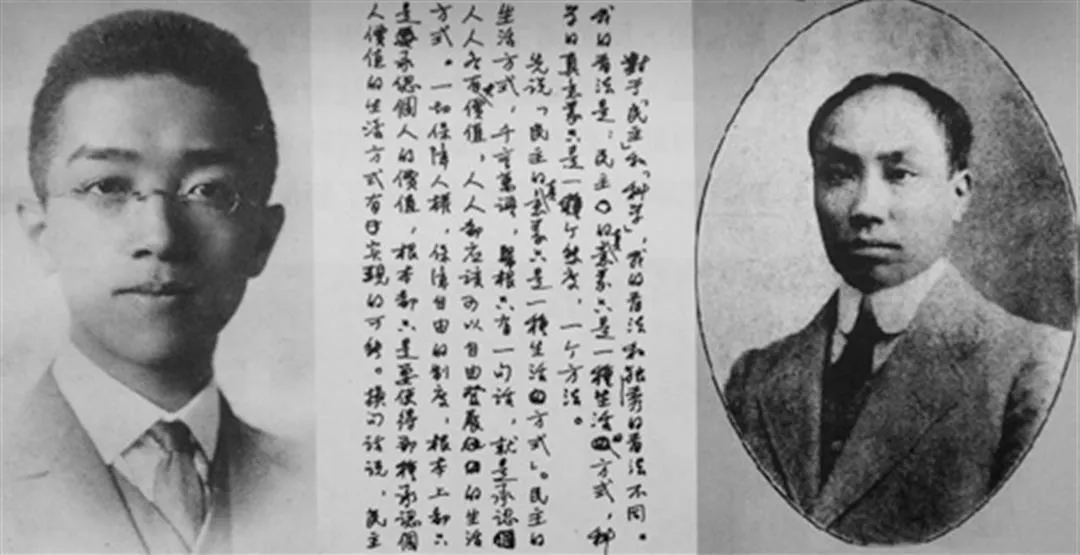 對于「民主」和「科学」,我的看法和独秀的看法不同。
我的看法是:民主的真意義只是一種生活的方式,科
学的真意義只是一種态度,一个方法。
先说「民主的真意義只是一種生活的方式」。民主的
生活方式,千言萬語,歸根只有一句话,就是承認
人人各有價值,人人都应該可以自由發展的生活
方式。一切保障人權,保障自由的制度,根本上都只
是要承認個人的價值,根本都只是要使得那種承認個
人價值的生活方式有实現的可能。換句话说,民主